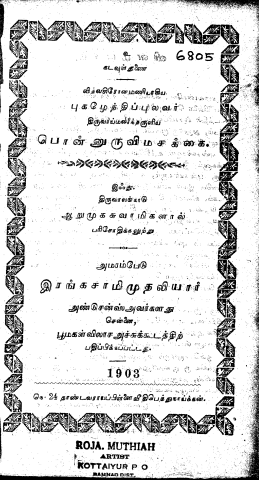 6805
கடவுள்துணை
வித்வசிரோமணியாகிய
புகழேந்திப்புலவர்
திருவாய்மலர்ந்தருளிய
பொன்னுருவிமசக்கை.
இஃது
திருவாலங்காடு
ஆறுமுகசுவாமிகளால்
பரிசோதிக்கலுற்று
அமரம்பேடு
இரங்கசாமிமுதலியார்
அண்டுசன்ஸ் அவர்களது
சென்னை,
பூமகள்விலாச அச்சுக்கூடத்திற்
பதிப்பிக்கப்பட்டது.
1903
நெ. 24 தாண்டவராயப்பிள்ளைவீதி
ROJA. MUTHIAH
ARTIST
KOTTAIYUR P O
RAMNAD DIST.